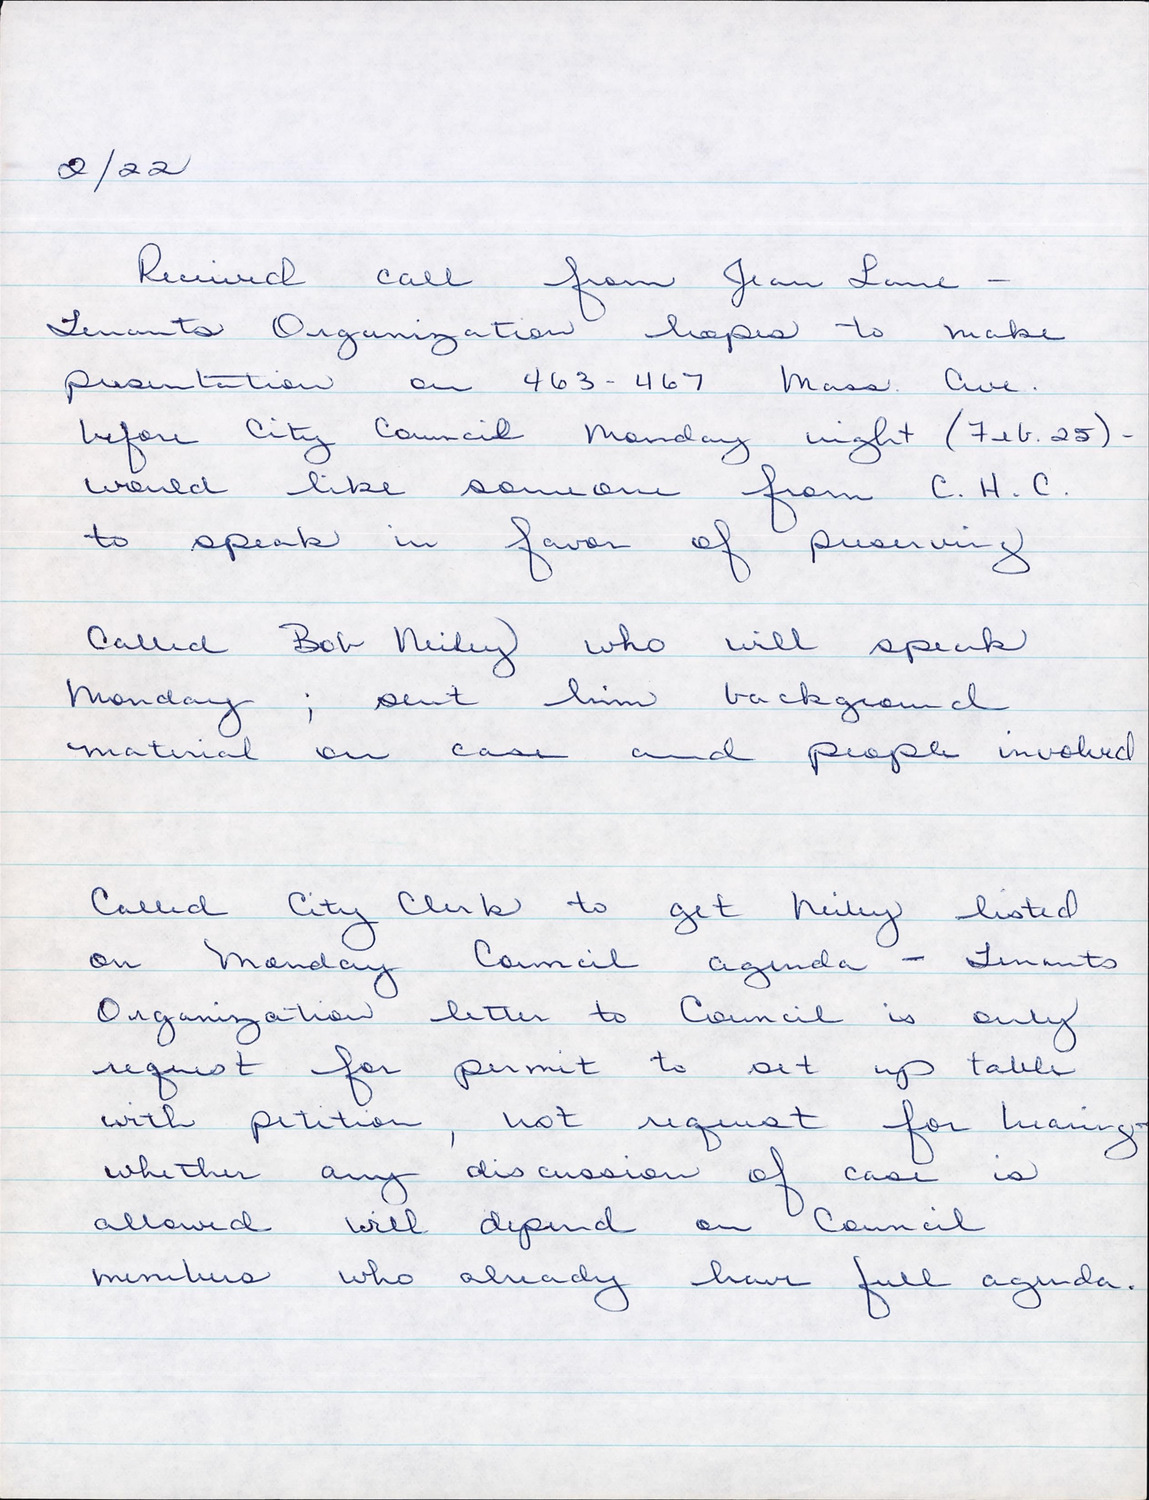 2/22
Received call from Jean Lane -
Tenants Organization hopes to make
presentation on 463-467 Mass. Ave.
before City Council Monday night (Feb. 25) -
would like someone from C.H.C.
to speak in favor of preserving
Called Bob Neiley who will speak
Monday ; sent him background
material on case and people involved
Called City Clerk to get Neiley listed
on Monday Council agenda - Tenants
Organization letter to Council is only
request for permit to set up table
with petition, not request for hearing -
whether any discussion of case is
allowed will depend on Council
members who already have full agenda.